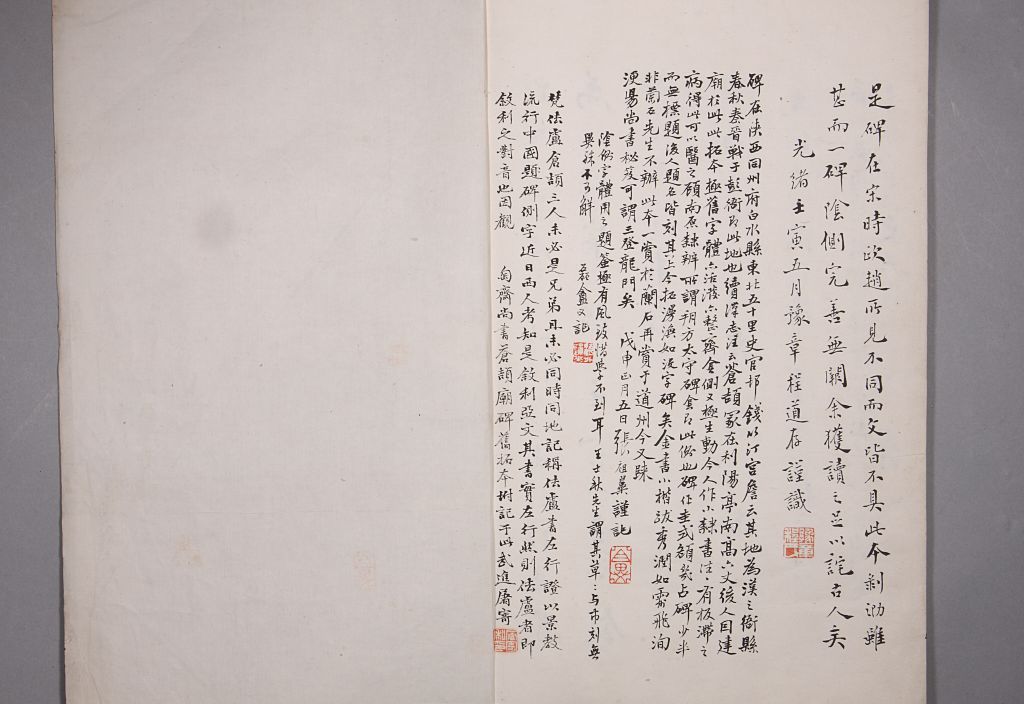 是碑在宋時歐趙所見不同而文皆不具此本剝泐雖
甚而一碑陰側完善無闕余獲讀之足以詫古人矣
光緒壬寅五月豫章程道存謹識
碑在陝西同州府白水縣東北五十里史官邨錢竹汀宮詹云其地為漢之衙縣
春秋秦晉戰于彭衙即此地也續漢志注云蒼頡冢在利陽亭南高六丈後人因建
廟於此此拓本極舊字體亦活潑亦整齊會側又極生動今人作小隸書注注有板滯之
病得此可以醫之顧南原隸辨所謂朔方太守碑會即此份也碑作圭式額穿占碑少半
而無標題後人題名皆刻其上今拓漫漶如沒字碑矣金書小楷跋秀潤如雲飛洵
非蘭石先生不辦此本一賞於蘭石再賞于道州今又歸
浭陽尚書秘笈可謂三登龍門矣 戊申正月五日張祖翼謹記
陰側字體用之題籤極有風致惜學不到耳 王士秋先生謂其草草與市刻無
異殊不可解 磊盦又記
梵佉盧倉頡三人未必是兄弟且未必同時同地記稱佉盧書左行證以景教
流行中國題碑側字近日西人考知是敘利亞文其書實左行然則佉盧者即
敘利之對音也因觀 匋齋尚書蒼頡廟碑舊拓本坿記于此武進屠寄